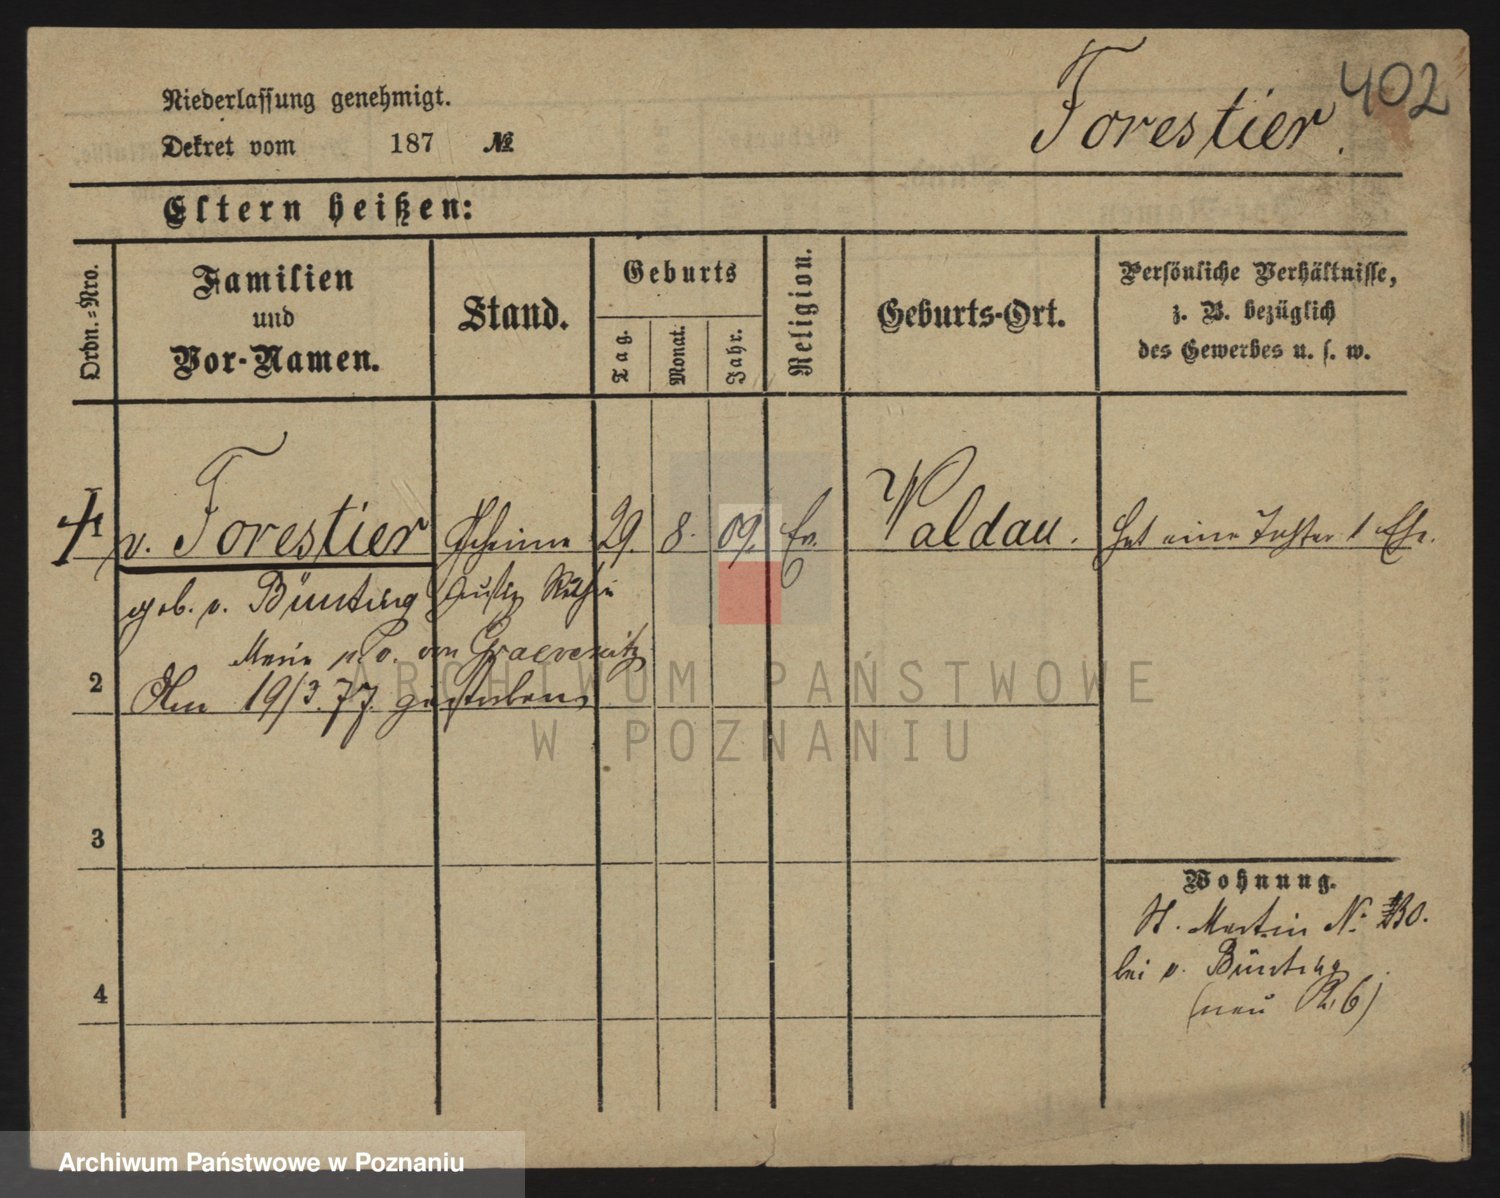 402
Forestier.
Niederlassung genehmigt.
Dekret vom 187 №
Eltern heißen:
Ordn.=Nro.
Familien
und
Vor-Namen.
Stand.
Geburts
Tag.
Monat.
Jahr.
Religion.
Geburts-Ort.
Persönliche Verhältnisse,
z. B. bezüglich
des Gewerbes u. s. w.
1 v. Forestier Geheime 29. 8. 09. Ev. Waldau. Hat eine Tochter 1 Ehe.
geb. v. Bünting Justiz Räthin
Marie von Graevenitz
2 Am 19/3.77. gestorben
3
4
Wohnung.
St. Martin N.
bei v. Bünting
(neu 6)
ARCHIWUM PAŃSTWOWE
W POZNANIU
Archiwum Państwowe w Poznaniu